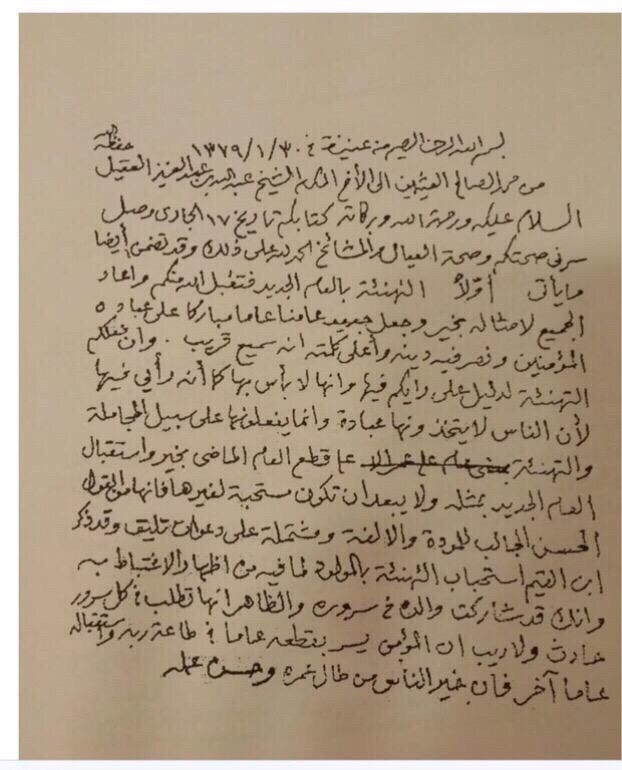 بسم الله الرحمن الرحيم من عنيزة في ٣٠/١/١٣٧٩
حفظه الله
من محمد الصالح العثيمين الى الأخ المكرم الشيخ عبد الله بن عبد العزيز العقيل
السلام عليكم ورحمة الله وبركاته كتابكم تاريخ ١٧ الجاري وصل
سرني صحتكم وصحة العيال والمشائخ الحمد لله على ذلك وقد تضمن أيضا
ما يأتي أولاً التهنئة بالعام الجديد فتقبل الله منكم وأعاد
الجميع لامثاله بخير وجعل جديد عامنا عاما مباركا على عباده
المؤمنين ونصر فيه دينه وأعلى كلمته انه سميع قريب . وان فعلكم
التهنئة لدليل على رأيكم فيها وانها لا بأس بها كما أنه رأيي فيها
لأن الناس لا يتخذونها عبادة وانما يفعلونها على سبيل المجاملة
والتهنئة على قطع العام الماضي بخير واستقبال
العام الجديد بمثله ولا يبعد ان تكون مستحبة لغيرها فانها من القول
الحسن الجالب للمودة والالفة ومشتملة على دعوات تليق وقد ذكر
ابن القيم استحباب التهنئة بالمولود لما فيه من اظهار الاغتباط به
وانك قد شاركت والده في سروره والظاهر انها تطلب في كل سرور
حادث ولا ريب ان المؤمن يسر بقطعه عاما في طاعة ربه واستقباله
عاما آخر فان خير الناس من طال عمره وحسن عمله